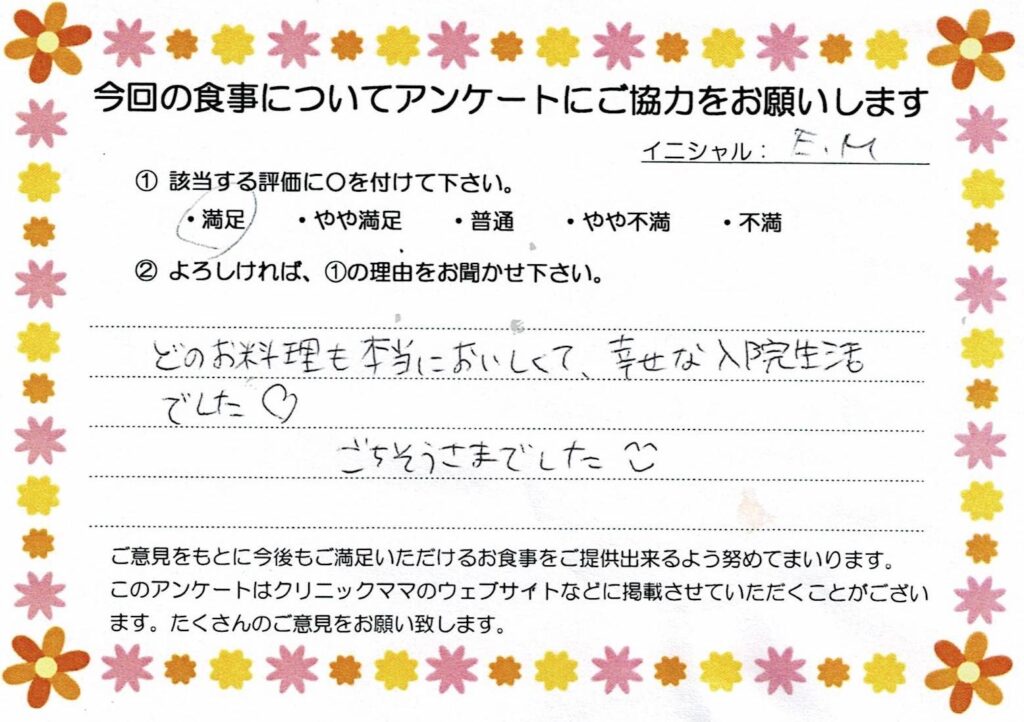 今回の食事についてアンケートにご協力をお願いします
イニシャル： E.M
① 該当する評価に〇を付けて下さい。
・満足 ・やや満足 ・普通 ・やや不満 ・不満
② よろしければ、①の理由をお聞かせ下さい。
どのお料理も本当においしくて、幸せな入院生活
でした♡
ごちそうさまでした
ご意見をもとに今後もご満足いただけるお食事をご提供出来るよう努めてまいります。
このアンケートはクリニックママのウェブサイトなどに掲載させていただくことがござい
ます。たくさんのご意見をお願い致します。